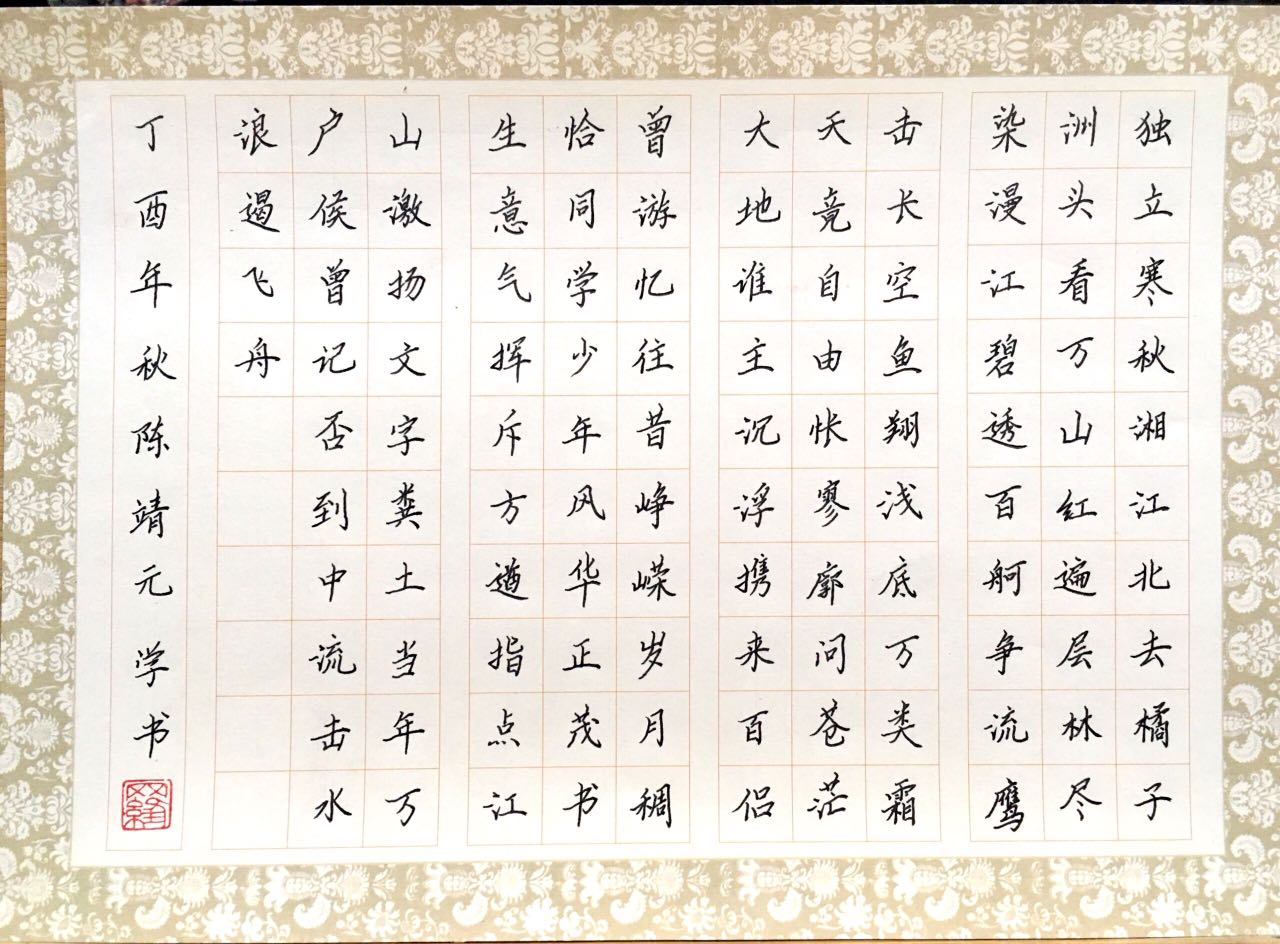 独立寒秋湘江北去橘子
洲头看万山红遍层林尽
染漫江碧透百舸争流鹰
击长空鱼翔浅底万类霜
天竟自由怅寥廓问苍茫
大地谁主沉浮携来百侣
曾游忆往昔峥嵘岁月稠
恰同学少年风华正茂书
生意气挥斥方遒指点江
山激扬文字粪土当年万
户侯曾记否到中流击水
浪遏飞舟
丁酉年秋陈靖元学书